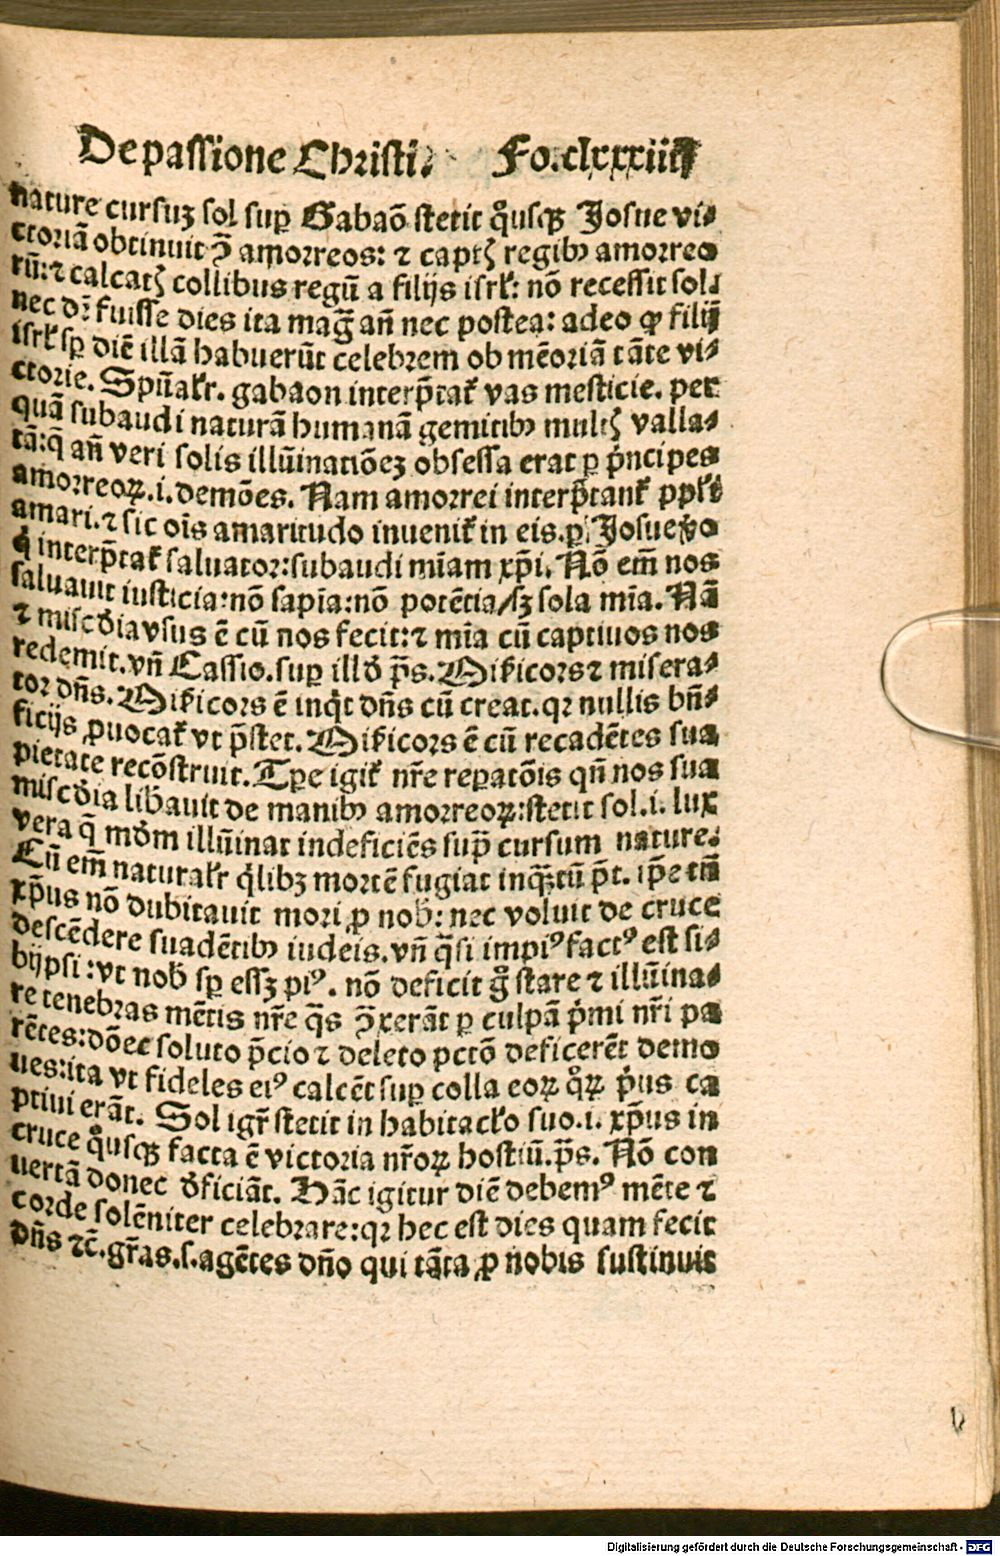 De passione Christi. Fo. clxxxiiij
nature cursuꝫ sol suꝑ Gabaõ stetit qͦusqꝫ Josue vi⸗
ctoriã obtinuit ꝯ̃ amorreos: ⁊ captꝭ regibꝰ amorreo
rũ: ⁊ calcatꝭ collibus regũ a filijs isrł: nõ recessit sol:
nec dr̃ fuisse dies ita mag̃ añ nec postea: adeo ꝙ filij
isrł sꝑ diẽ illã habuerũt celebrem ob mẽoriã tãte vi⸗
ctorie. Spũalr̃. gabaon interp̃tat᷑ vas mesticie. per
quã subaudi naturã humanã gemitibꝰ multꝭ valla⸗
tã: q̃ añ veri solis illũinatiõeꝫ obsessa erat ꝑ pͥncipes
amorreoꝝ .i. demões. Nam amorrei interp̃tant᷑ ppłi
amari. ⁊ sic oĩs amaritudo inuenit᷑ in eis. ꝑ Josue ꝟo
qͥ interp̃tat᷑ saluator: subaudi mĩam xp̃i. Nõ em̃ nos
saluauit iusticia: nõ sapĩa: nõ potẽtia/ sꝫ sola mĩa. Nã
⁊ misc̃dia vsus ẽ cũ nos fecit: ⁊ mĩa cũ captiuos nos
redemit. vñ Cassio. suꝑ illđ p̃s. Miẜicors ⁊ misera⸗
tor dñs. Miẜicors ẽ inqͥt dñs cũ creat. qꝛ nullis bñ⸗
ficijs ꝓuocat᷑ vt p̃stet. Miẜicors ẽ cũ recadẽtes sua
pietate recõstruit. Tꝑe igit᷑ nr̃e reꝑatõis qñ nos sua
misc̃dia lib̃auit de manibꝰ amorreoꝝ: stetit sol .i. lux
vera q̃ mđm illũinat indeficiẽs sup̃ cursum nature.
Cũ em̃ naturalr̃ qͥlibꝫ mortẽ fugiat inq̃ꝫtũ p̃t. ip̃e tñ
xp̃us nõ dubitauit mori ꝓ nob̃: nec voluit de cruce
descẽdere suadẽtibꝰ iudeis. vñ q̃si impiꝰ factꝰ est si⸗
bijpsi: vt nob̃ sꝑ essꝫ piꝰ. nõ deficit gͦ stare ⁊ illũina⸗
re tenebras mẽtis nr̃e q̃s ꝯ̃xerãt ꝑ culpã pͥmi nr̃i pa
rẽtes: dõec soluto p̃cio ⁊ deleto pctõ deficerẽt demo
nes: ita vt fideles eiꝰ calcẽt suꝑ colla eoꝝ qͦꝝ pͥus ca
ptiui erãt. Sol igr̃ stetit in habitacło suo .i. xp̃us in
cruce qͦusqꝫ facta ẽ victoria nr̃oꝝ hostiũ. p̃s. Nõ con
uertã donec đficiãt. Hãc igitur diẽ debemꝰ mẽte ⁊
corde solẽniter celebrare: qꝛ hec est dies quam fecit
dñs ⁊c̃. gr̃as .s. agẽtes dño qui tãta ꝓ nobis sustinuit
Digitalisierung gefördert durch die Deutsche Forschungsgemeinschaft - DFG